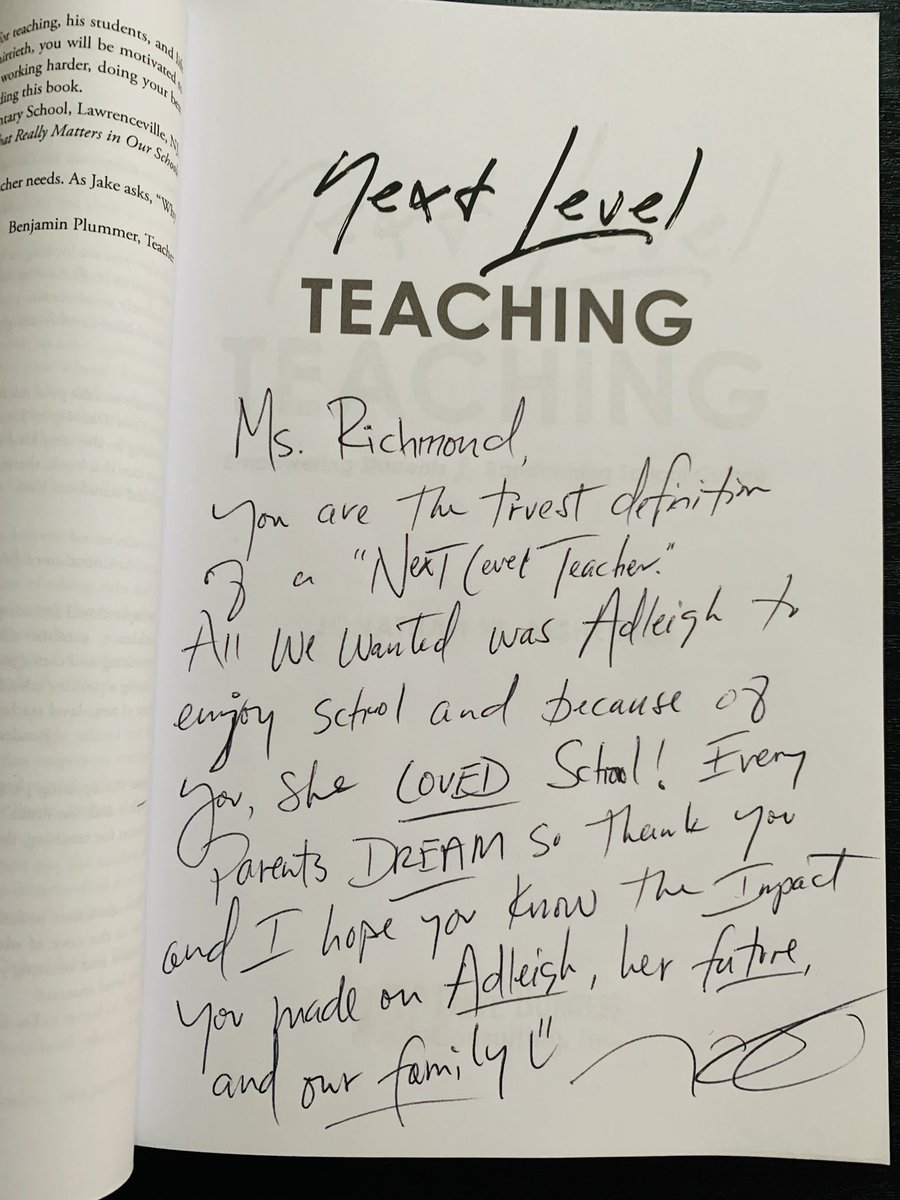 for teaching, his students, and
you will be motivated
working harder, doing your best
ding this book.
ntary School, Lawrenceville, NJ
hat Really Matters in Our Schools
cher needs. As Jake asks, “Why
Benjamin Plummer, Teacher
Next Level
TEACHING
Ms. Richmond,
you are the truest definition
of a "Next Level Teacher."
All we wanted was Adleigh to
enjoy school and because of
you, she LOVED School! Every
Parents DREAM so thank you
and I hope you know the Impact
you made on Adleigh, her future,
and our family